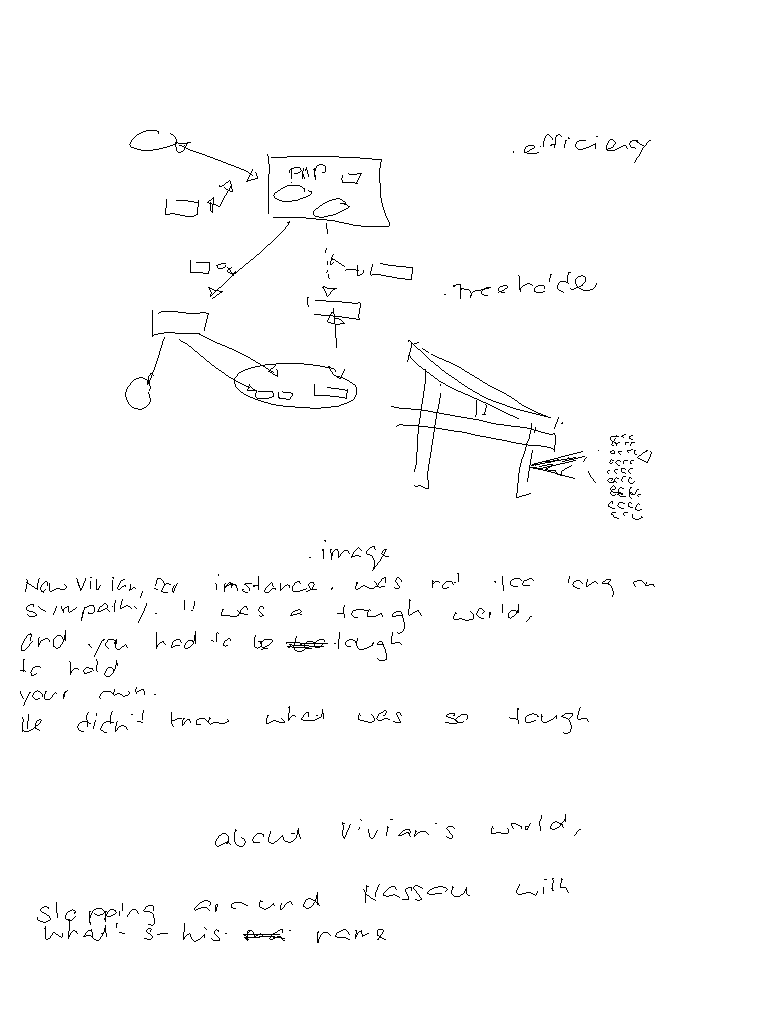 .efficiency
PMP
.image
Now Vivian, for instance. was not too long on
sympathy. It was a tough world,
and you had to be tough
to hold
your own.
He didn't know what was so tough
about Vivian's world,
slopping around Nassau with
what's-his name